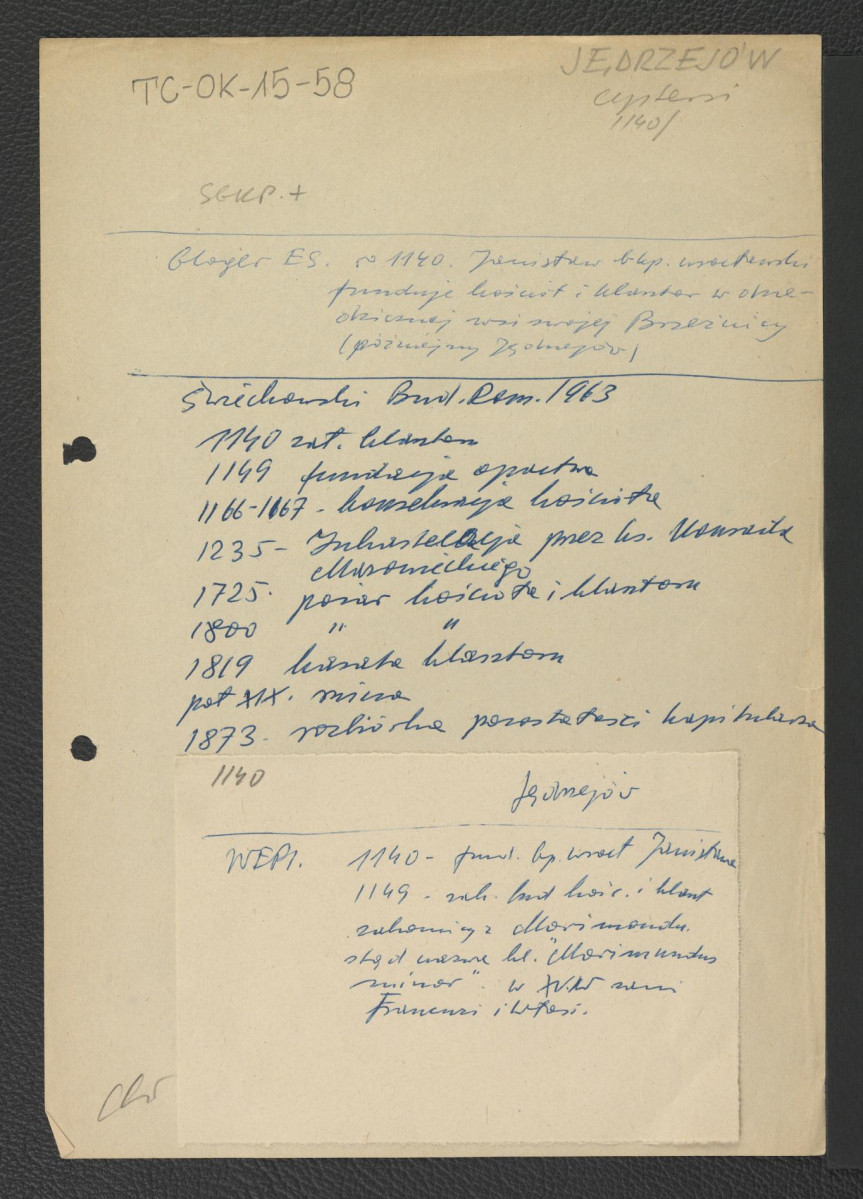 TC-OK-15-58
JĘDRZEJÓW
cystersi
1140/
SGKP. +
Gloger ES. r 1140. Janisław bkp. wrocławski
funduje kościół i klasztor w dzie-
dzicznej wsi swojej Brzeźnicy
(późniejszy Jędrzejów)
Świechowski Bud. Rom. 1963
1140 zał. klasztoru
1149 fundacja opactwa
1166-1167 - konsekracja kościoła
1235 - Inkastelacja przez ks. Konrada
Mazowieckiego
1725. pożar kościoła i klasztoru
1800 " "
1819 kasata klasztoru
poł XIX. ruina
1873. rozbiórka pozostałości kapitularza
1140
Jędrzejów
WEPI. 1140 - fund. bp. wrocł Janisława
1149 - zak. bud kośc. i klaszt
zakonnicy z Morimondu.
stąd nazwa kl. "Morimundus
minor". w XV.W sami
Francuzi i Włosi.